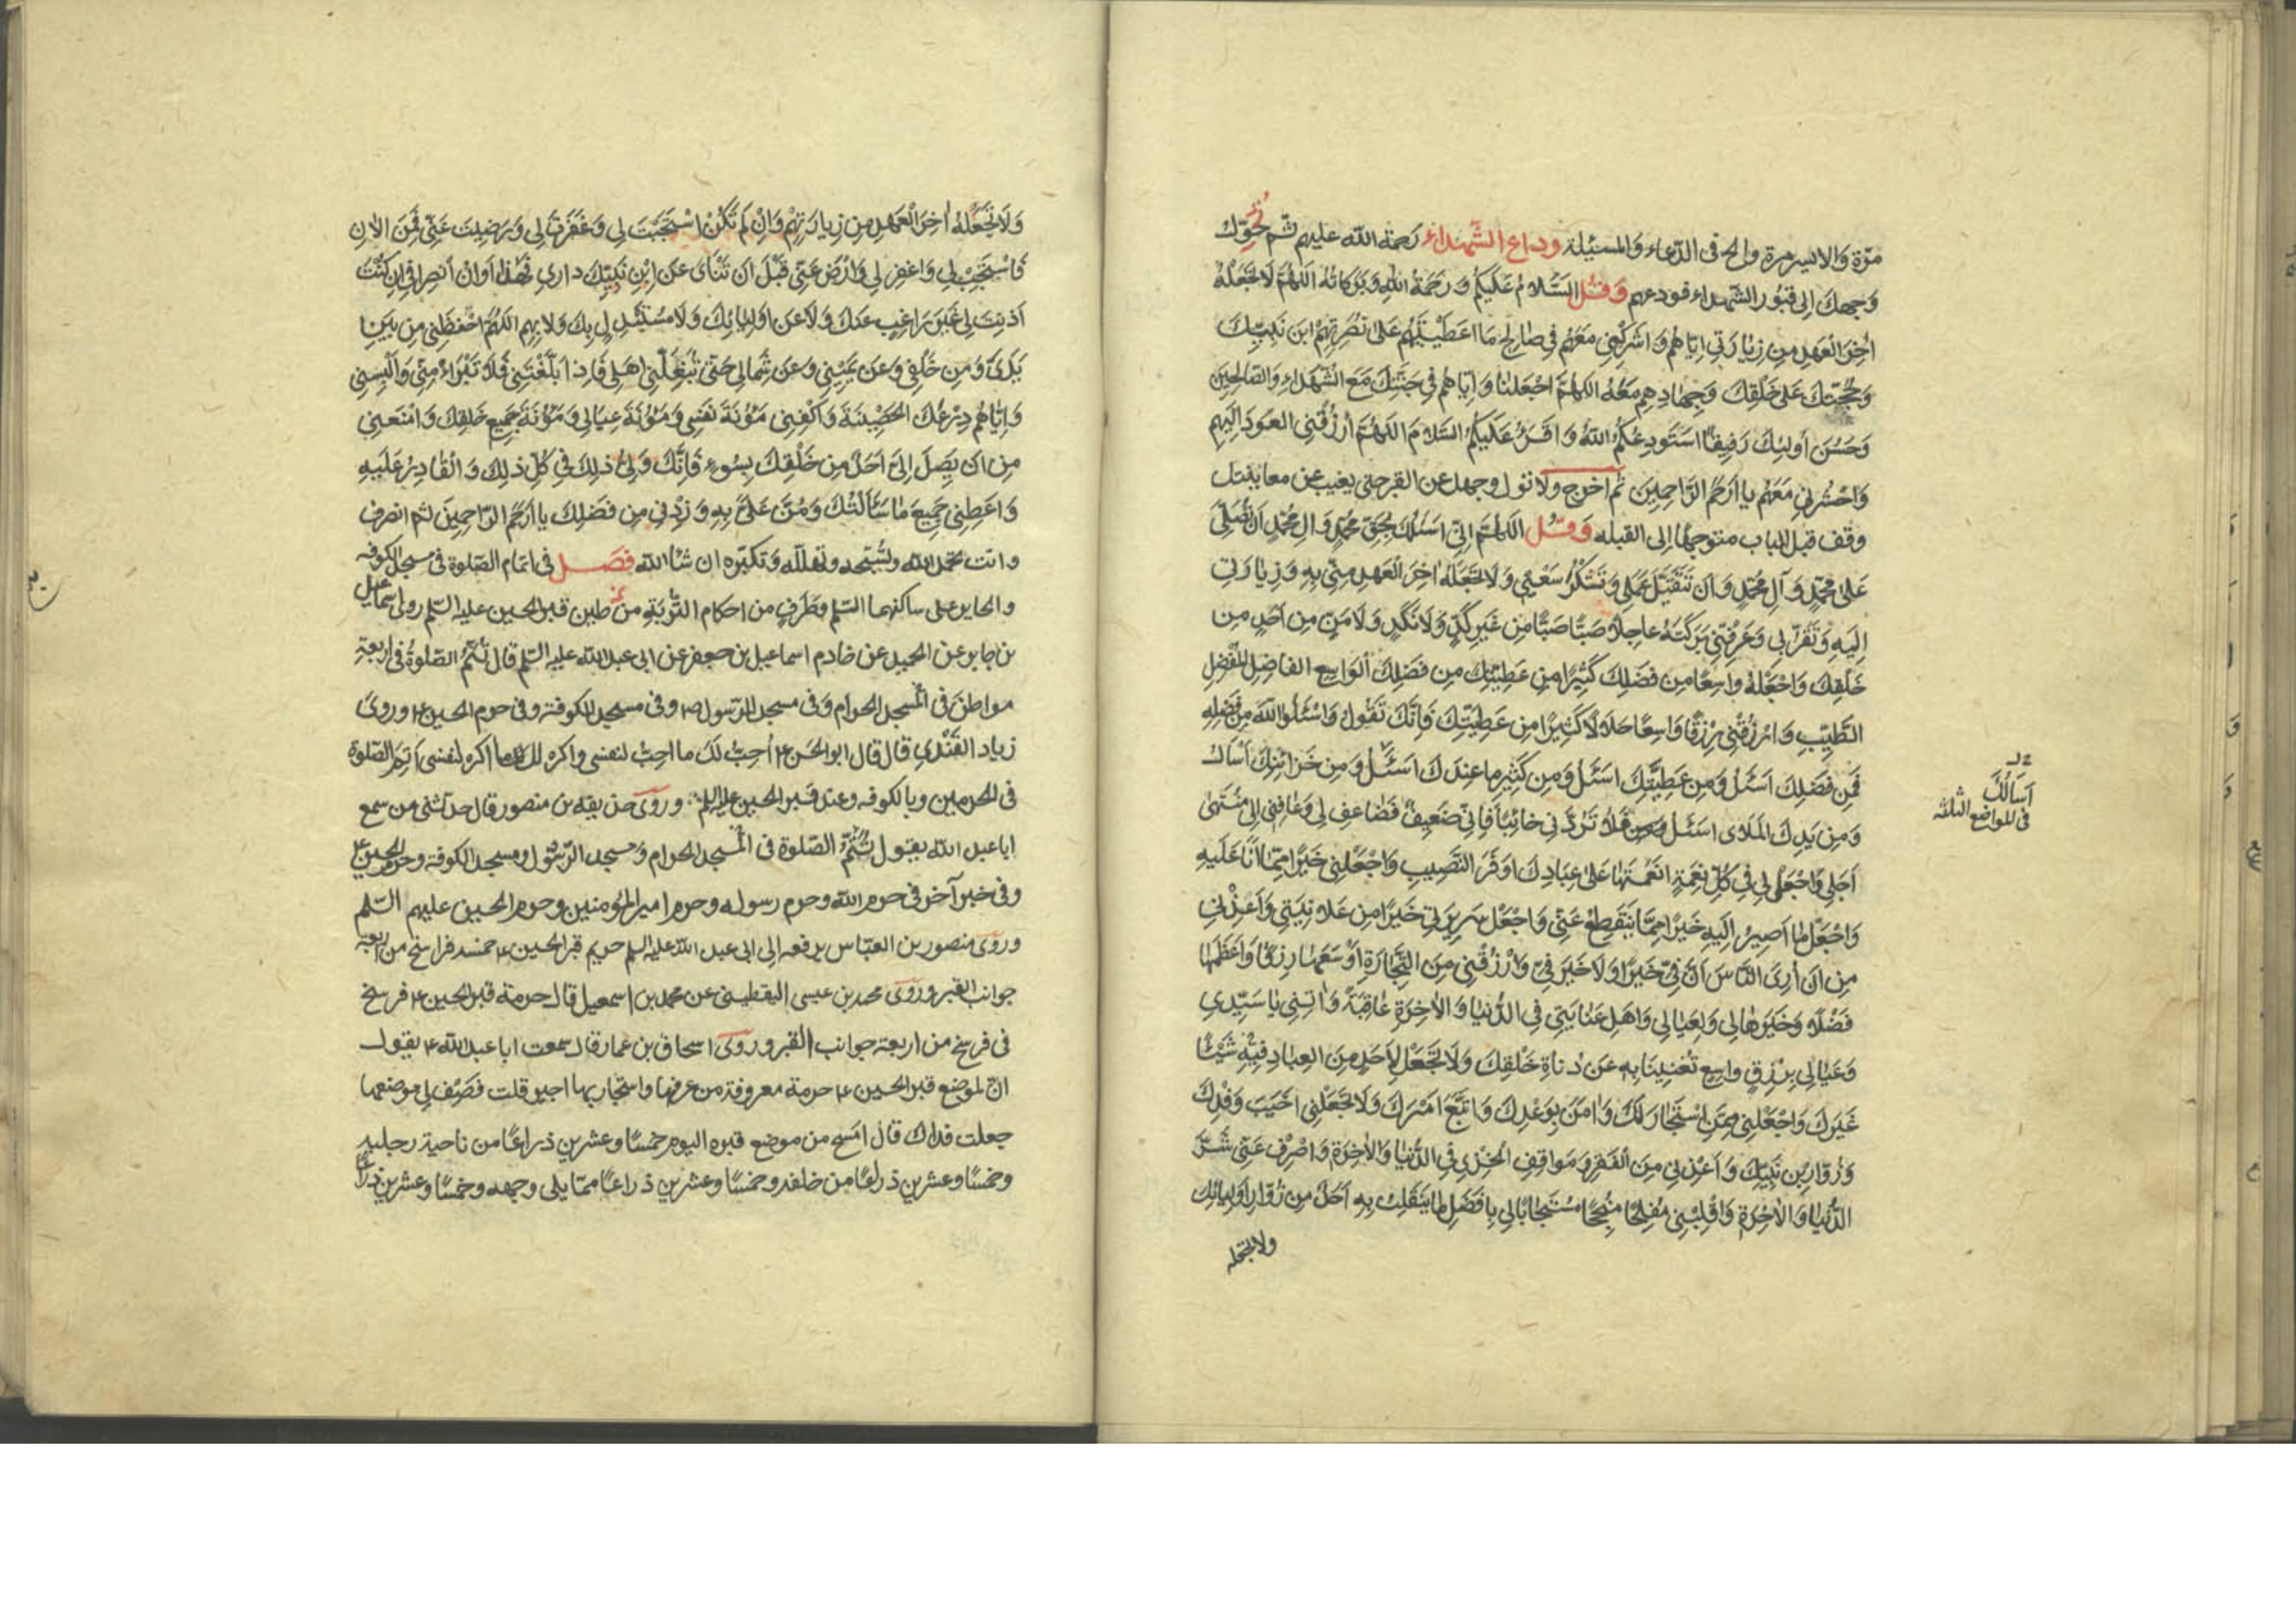 مرّة والايسر مرة والح فى الدّعاء والمسئلة وداع الشّهداء رحمة الله عليهم ثم تحوّل
وجهك الى قبور الشّهداء فودعهم وَقُل السَّلامُ عَلَيْكُم وَرَحْمَةُ اللهِ وَبَرَكاتُهُ اللّهُمَّ لا تَجْعَلْهُ
اخِرَ الْعَهْدِ مِنْ زِيارَتي اِيّاهُمْ وَاَشْرِكْني مَعَهُمْ في صالِحِ ما اَعْطَيْتَهُمْ عَلى نُصْرَتِهِمُ ابْنَ نَبِيِّكَ
وَحُجَّتَكَ عَلى خَلْقِكَ وَجِهادِهِم مَعَهُ اللّهُمَّ اجْعَلْنا وَاِيّاهُمْ في جَنَّتِكَ مَعَ الشُّهَداءِ وَالصّالِحينَ
وَحَسُنَ اُولئِكَ رَفيقًا اَسْتَودِعُكُمُ اللهَ وَاَقْرَءُ عَلَيْكُمُ السَّلامَ اللّهُمَّ ارْزُقْنِي العَوْدَ اِلَيْهِم
وَاحْشُرْني مَعَهُمْ يا اَرْحَمَ الرّاحِمينَ ثم اخرج ولا تول وجهك عن القبر حتى يغيب عن معاينتك
وقف قبل الباب متوجها الى القبله وَقُل اللّهُمَّ اِنّي اَسْئَلُكَ بِحَقِّ مُحَمَّدٍ وَالِ مُحَمَّدٍ اَنْ تُصَلِّيَ
عَلى مُحَمَّدٍ وَآلِ مُحَمَّدٍ وَاَنْ تَتَقَبَّلَ عَمَلي وَتَشْكُرَ سَعْيي وَلا تَجْعَلَهُ اخِرَ الْعَهْدِ مِنّي بِهِ وَزِيارَتي
اِلَيْهِ وَتَقَرُّبي وَعَرِّفْني بَرَكَتَهُ عاجِلًا صَبًّا صَبًّا مِنْ غَيْرِ كَدٍّ وَلا نَكَدٍ وَلا مَنٍّ مِنْ اَحَدٍ مِنْ
خَلْقِكَ وَاجْعَلْهُ واسِعًا مِنْ فَضْلِكَ كَثيرًا مِنْ عَطِيَّتِكَ مِن فَضْلِكَ الْواسِعِ الفاضِلِ المُفْضِلِ
الطَّيِّبِ وَارْزُقْني رِزْقًا واسِعًا حَلالًا كَثيرًا مِنْ عَطِيَّتِكَ فَاِنَّكَ تَقُولُ وَاسْئَلُوا اللهَ مِنْ فَضْلِهِ
فَمِنْ فَضْلِكَ اَسْئَلُ وَمِنْ عَطِيَّتِكَ اَسْئَلُ وَمِنْ كَثيرِ ما عِنْدَكَ اَسْئَلُ وَمِنْ خَزائِنِكَ اَسْاَلُ
وَمِنْ يَدِكَ المَلاى اَسْئَلُ فَلا تَرُدَّني خائِبًا فَاِنّي ضَعيفٌ فَضاعِف لي وَعافِني اِلى مُنْتَهى
اَجَلي وَاجْعَلْ لي في كُلِّ نِعْمَةٍ اَنْعَمْتَها عَلى عِبادِكَ اَوْفَرَ النَّصيبِ وَاجْعَلْني خَيْرًا مِمّا اَنا عَلَيْهِ
وَاجْعَلْ ما اَصيرُ اِلَيْهِ خَيْرًا مِمّا يَنْقَطِعُ عَنّي وَاجْعَلْ سَريرَتي خَيْرًا مِن عَلانِيَتي وَاَعِذْني
مِنْ اَنْ اُرِيَ النّاسَ اَنَّ فِيَّ خَيْرًا وَلا خَيْرَ فِيَّ وَارْزُقْني مِنَ التِّجارَةِ اَوْسَعَها رِزْقًا وَاَعْظَمَها
فَضْلًا وَخَيْرَها لي وَلِعِيالي وَاَهْلِ عِنايَتي فِي الدُّنْيا وَالْاخِرَةِ عاقِبَةً وَاتِني يا سَيِّدي
وَعِيالي بِرِزْقٍ واسِعٍ تُغْنينا بِهِ عَنْ دُناةِ خَلْقِكَ وَلا تَجْعَلْ لِاَحَدٍ مِنَ العِبادِ فيهِ شَيْئًا
غَيْرَكَ وَاجْعَلْني مِمَّنِ اسْتَجارَ لَكَ وَامَنَ بِوَعْدِكَ وَاتَّبَعَ اَمْرَكَ وَلا تَجْعَلْني اَخْيَبَ وَفْدِكَ
وَزُوّارِ بْنِ نَبِيِّكَ وَاَعِذْني مِنَ الْفَقْرِ وَمَواقِفِ الخِزْيِ فِي الدُّنْيا وَالْاخِرَةِ وَاصْرِفْ عَنّي شَرَّ
الدُّنْيا وَالْاخِرَةِ وَاقْلِبْني مُفْلِحًا مُنْجِحًا مُسْتَجابًا لي بِاَفْضَلِ ما يَنْقَلِبُ بِهِ اَحَدٌ مِنْ زُوّارِ اَوْلِيائِكَ
ولا تجعله
اَسْاَلُكَ
فى المواضع الثلثة
وَلا تَجْعَلْهُ اخِرَ الْعَهْدِ مِن زِيارَتِهِمْ وَاِنْ لَمْ تَكُنِ اسْتَجَبْتَ لي وَغَفَرْتَ لي وَرَضيتَ عَنّي فَمِنَ الْانِ
فَاسْتَجِبْ لي وَاغْفِر لي وَارْضَ عَنّي قَبْلَ اَنْ تَنْاى عَنِ ابْنِ نَبِيِّكَ داري فَهذا اَوانُ انْصِرافي اِنْ كُنْتَ
اَذِنْتَ لي غَيْرَ راغِبٍ عَنْكَ وَلا عَنْ اَوْلِيائِكَ وَلا مُسْتَبْدِلٍ بِكَ وَلا بِهِم اللّهُمَّ احْفَظْني مِنْ بَيْنِ
يَدَيَّ وَمِنْ خَلْفي وَعَن يَميني وَعَن شِمالي حَتّى تُبَلِّغَني اَهْلي فَاِذا بَلَّغْتَني فَلا تَبْرَاْ مِنّي وَاَلْبِسْني
وَاِيّاهُمْ دِرْعَكَ الحَصينَةَ وَاكْفِني مَؤُنَةَ نَفْسي وَمَؤُنَةَ عِيالي وَمَؤُنَةَ جَميعِ خَلْقِكَ وَامْنَعْني
مِن اَنْ يَصِلَ اِلَيَّ اَحَدٌ مِن خَلْقِكَ بِسُوءٍ فَاِنَّكَ وَلِيُّ ذلِكَ في كُلِّ ذلِكَ وَالْقادِرُ عَلَيْهِ
وَاَعْطِني جَميعَ ما سَأَلْتُكَ وَمُنَّ عَلَيَّ بِهِ وَزِدْني مِن فَضْلِكَ يا اَرْحَمَ الرّاحِمينَ ثم انصرف
وانت تحمد الله وتسبّحه وتهلّله وتكبّره ان شاالله فصل فى اتمام الصّلوة فى مسجد الكوفه
والحاير على ساكنهما السّلم وطَرَفٍ من احكام التّربَةِ من طين قبر الحسين عليه السّلم روى اسماعيل
بن جابر عن خادم اسماعيل بن جعفر عن ابى عبد الله عليه السّلم قال تُتَمُّ الصّلوةُ فى اربعة
مواطنَ فى المسجد الحرام وفى مسجد الرّسول ص وفى مسجد الكوفة وفى حرم الحسين ع وروى
زياد القَنْدي قال قال ابو الحسن ع اُحِبُّ لَكَ ما احِبُّ لنفسى واكره لك ما اكره لنفسى اَتِمِّ الصّلوة
فى الحرمين وبالكوفه وعند قبر الحسين عليه السلم وروى حذيفه بن منصور قال حدثنى من سمع
ابا عبد الله يقول تُتَمُّ الصّلوة فى المسجد الحرام ومسجد الرّسول ومسجد الكوفة وحرم الحسين ع
وفى خبر آخر فى حرم الله وحرم رسوله وحرم امير المؤمنين وحرم الحسين عليهم السّلم
وروى منصور بن العبّاس يرفعه الى ابى عبد الله عليه السلم حريم قبر الحسين ع خمسه فراسخ من اربعة
جوانب القبر وروى محمد بن عيسى اليقطينى عن محمد بن اسمعيل قال حرمة قبر الحسين ع فرسخ
فى فرسخ من اربعة جوانب القبر وروى اسحاق بن عمار قال سمعت ابا عبد الله ع يقول
انّ لموضع قبر الحسين ع حرمة معروفة من عرفها واستجار بها اجير قلت فَصِف لي موضعها
جعلت فداك قال امسح من موضع قبره اليوم خمسًا وعشرين ذراعًا من ناحية رجليه
وخمسًا وعشرين ذراعًا من خلفه وخمسًا وعشرين ذراعًا ممّا يلى وجهه وخمسًا وعشرين ذراعًا